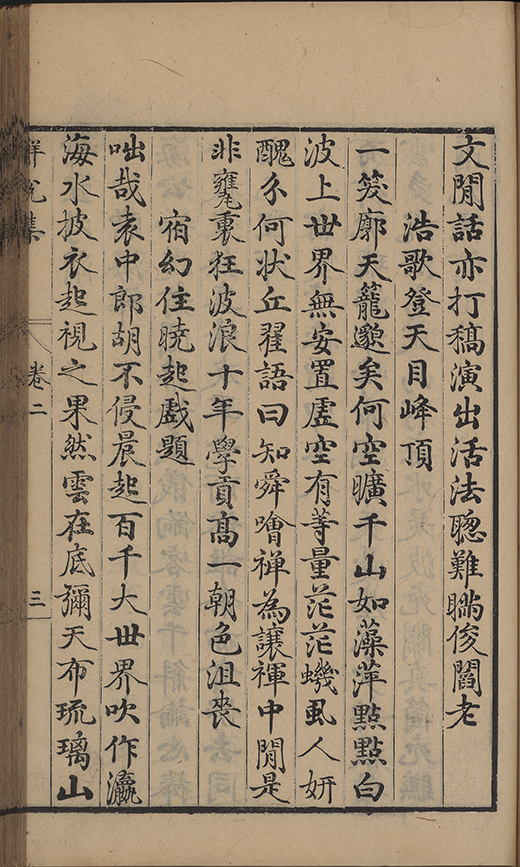 文閒話亦打稿演出活法聰難瞞俊閻老
浩歌登天目峰頂
一笈廓天籠邈矣何空曠千山如藻萍點點白
波上世界無安置虛空有等量茫茫蟣虱人妍
醜介何狀丘翟語曰知舜噲禅為讓禈中閒是
非甕裏狂波浪十年學貢高一朝色沮喪
宿幻住曉起戲題
咄哉袁中郎胡不侵晨起百千大世界吹作瀛
海水披衣起視之果然雲在底彌天布琉璃山
解脫集 卷二 三